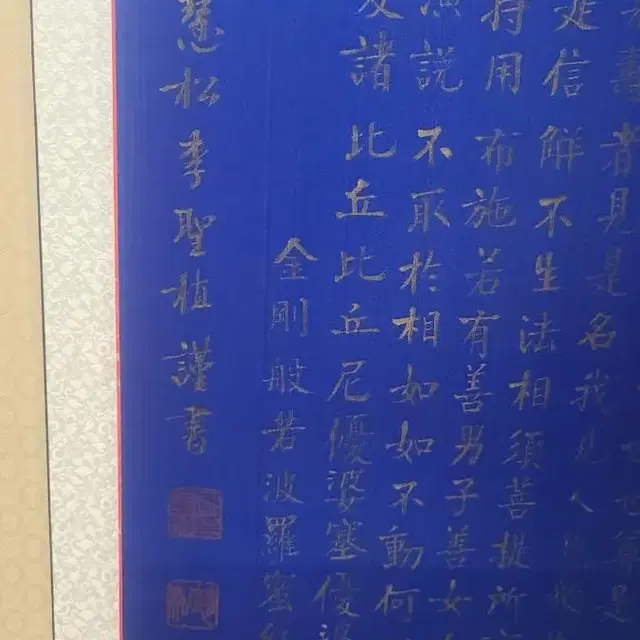 者見是名我見人
是信解不生法相須菩提所
持用布施若有善男子善女
演說不取於相如如不動何
及諸比丘比丘尼優婆塞優婆
金剛般若波羅蜜經
慧松李聖植謹書